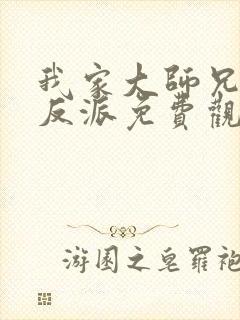 我家大師兄
反派免費觀
游園之皂羅袍